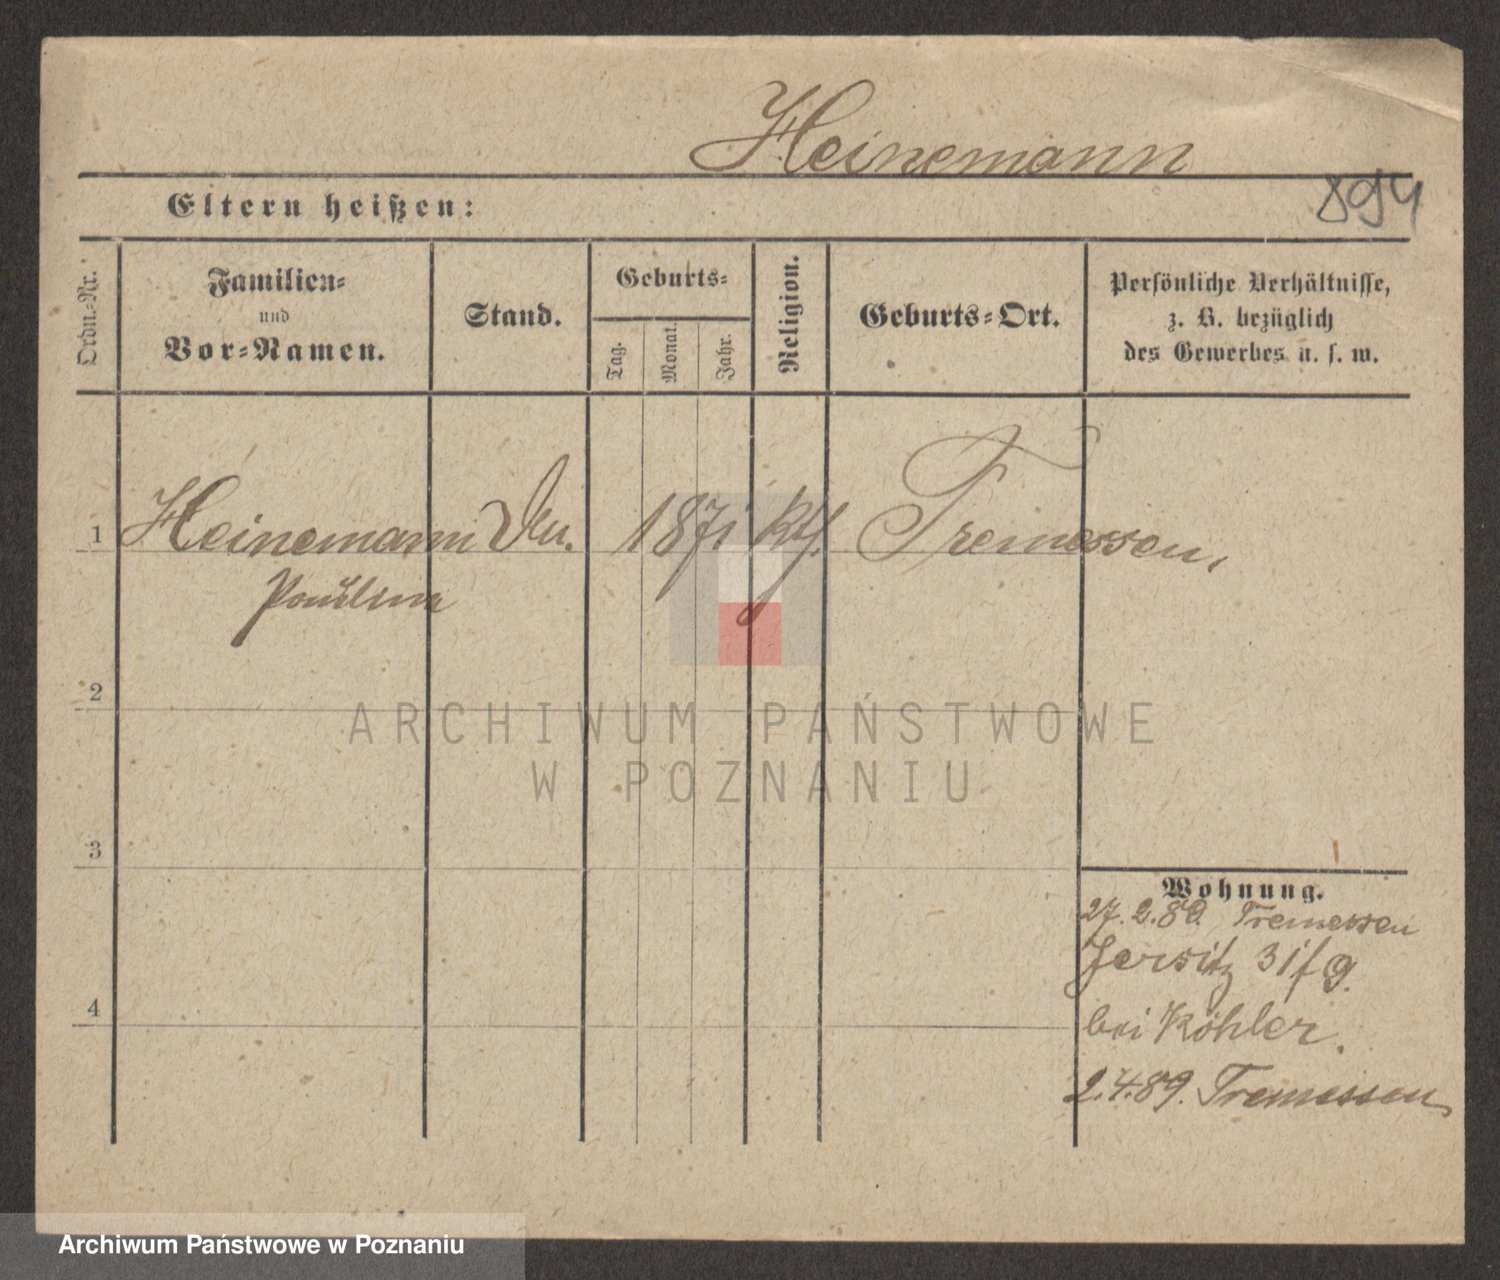 Heinemann
894
Eltern heißen:
Ordn.-Nr.
Familien-
und
Vor-Namen.
Stand.
Geburts-
Tag.
Monat.
Jahr.
Religion.
Geburts-Ort.
Persönliche Verhältnisse,
z. B. bezüglich
des Gewerbes u. s. w.
1 Heinemann 1871 Kth. Tremessen,
2
3
4
Wohnung.
27.2.89. Tremessen
Jersitz 31f 9.
bei Köhler.
2.4.89. Tremessen
ARCHIWUM PAŃSTWOWE
W POZNANIU
Archiwum Państwowe w Poznaniu